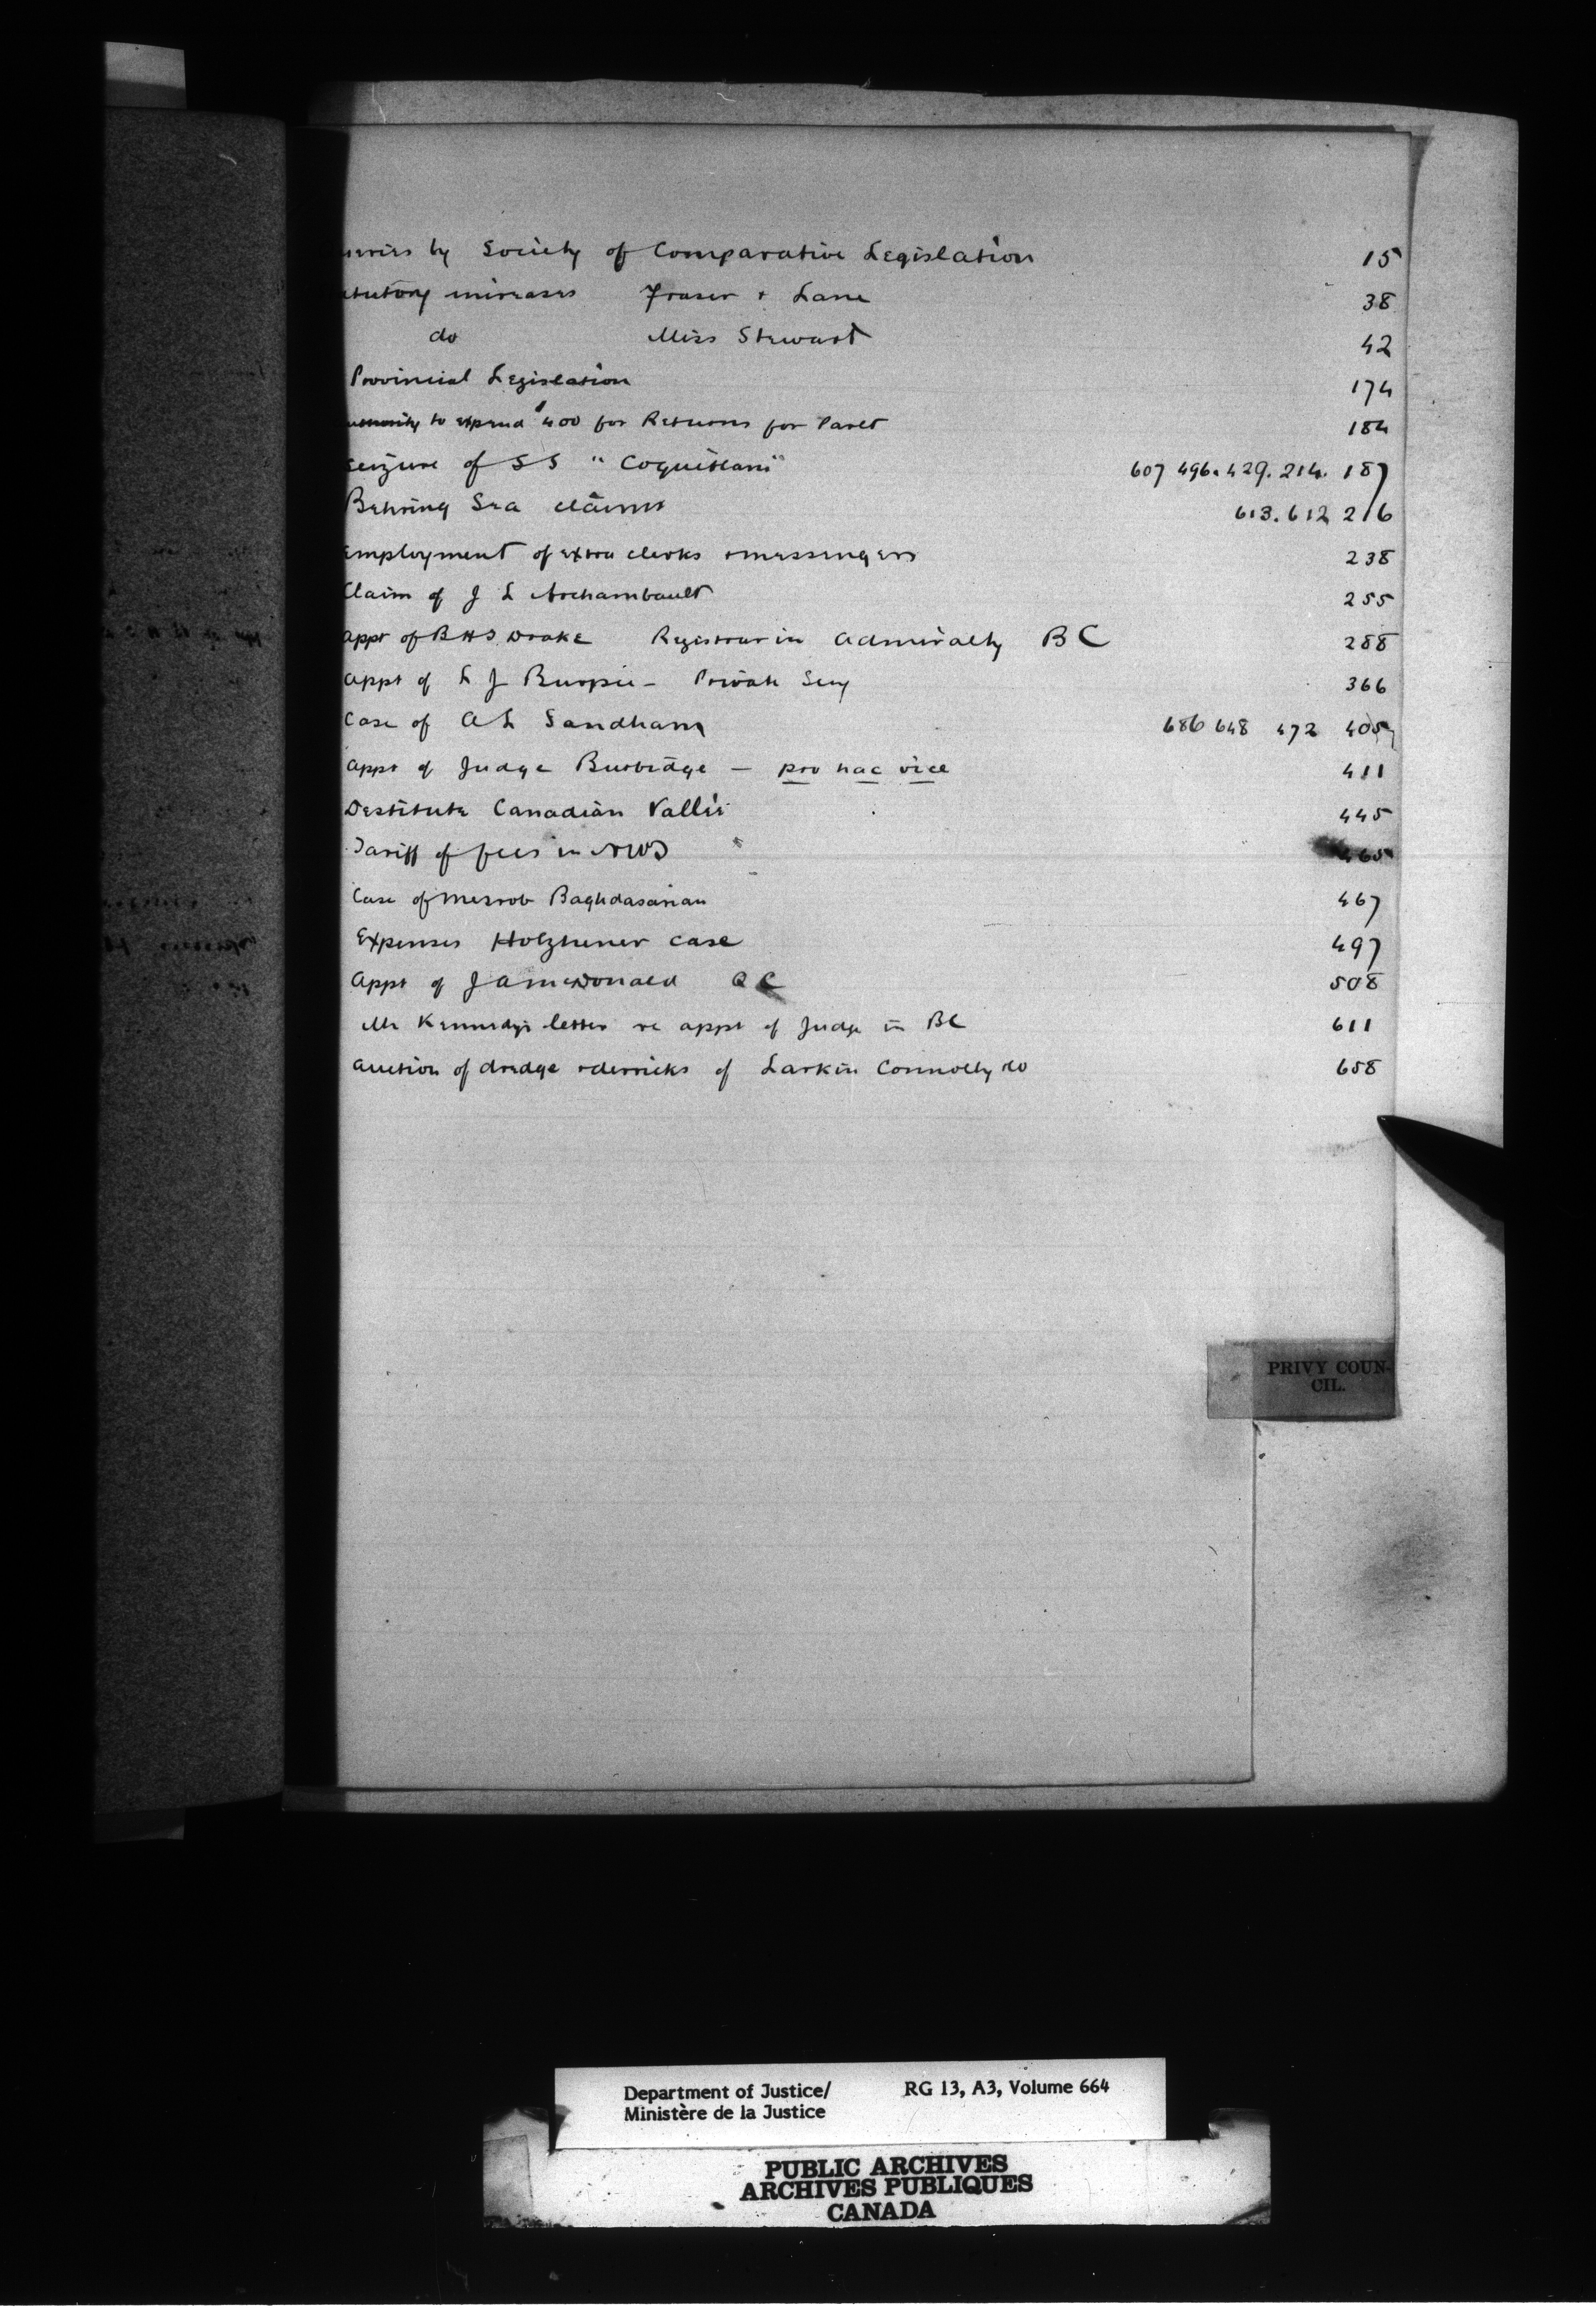 by Society of Comparative Legislation 15
increases Fraser + Lane 38
do Miss Stewart 42
Provincial Legislation 174
to expend $400 for Returns for Parlt 184
Seizure of SS "Coquitlam" 607 496. 429. 214. 187
Behring Sea claims 613. 612 216
Employment of extra clerks + messengers 238
Claim of J L Archambault 255
Appt of BHT Drake Registrar in Admiralty BC 288
Appt of L J Burpee - Private Secy 366
Case of A L Sandham 686 648 472 405
Appt of Judge Burbidge - pro hac vice 411
Destitute Canadian Vallis 445
Tariff of fees in NWT 465
Case of Mesrob Baghdasarian 467
Expenses Holzheuer case 497
Appt of J A McDonald QC 508
Mr Kennedy's letter re appt of Judge in BC 611
Auction of dredge + derricks of Larkin Connolly Co 658
PRIVY COUN-
CIL.
Department of Justice/ RG 13, A3, Volume 664
Ministère de la Justice
PUBLIC ARCHIVES
ARCHIVES PUBLIQUES
CANADA